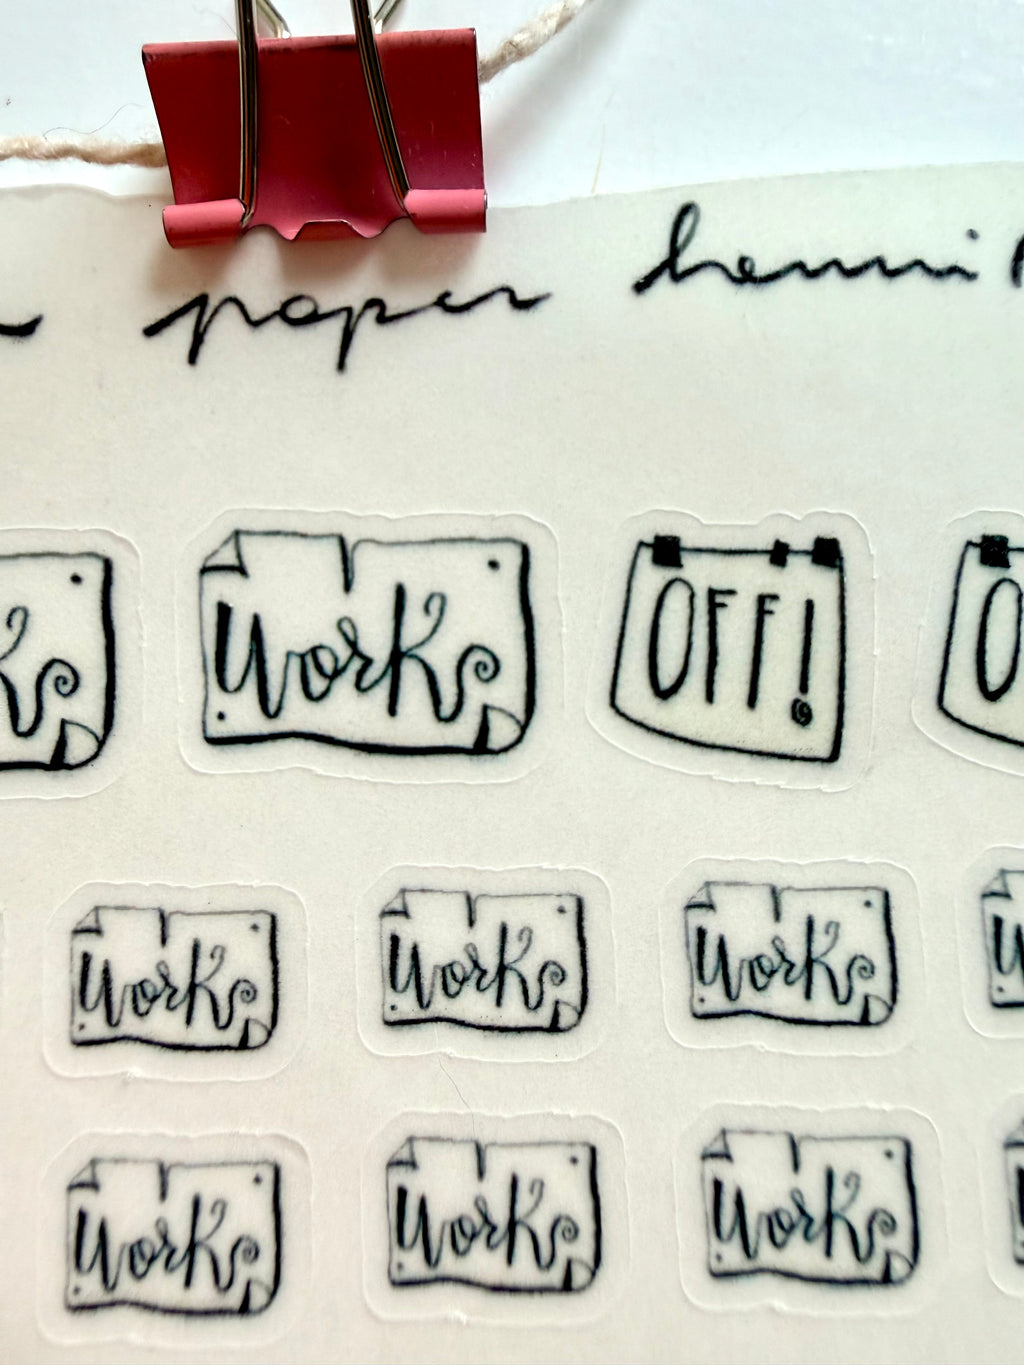 paper hermit
Work OFF!
Work Work Work
Work Work Work